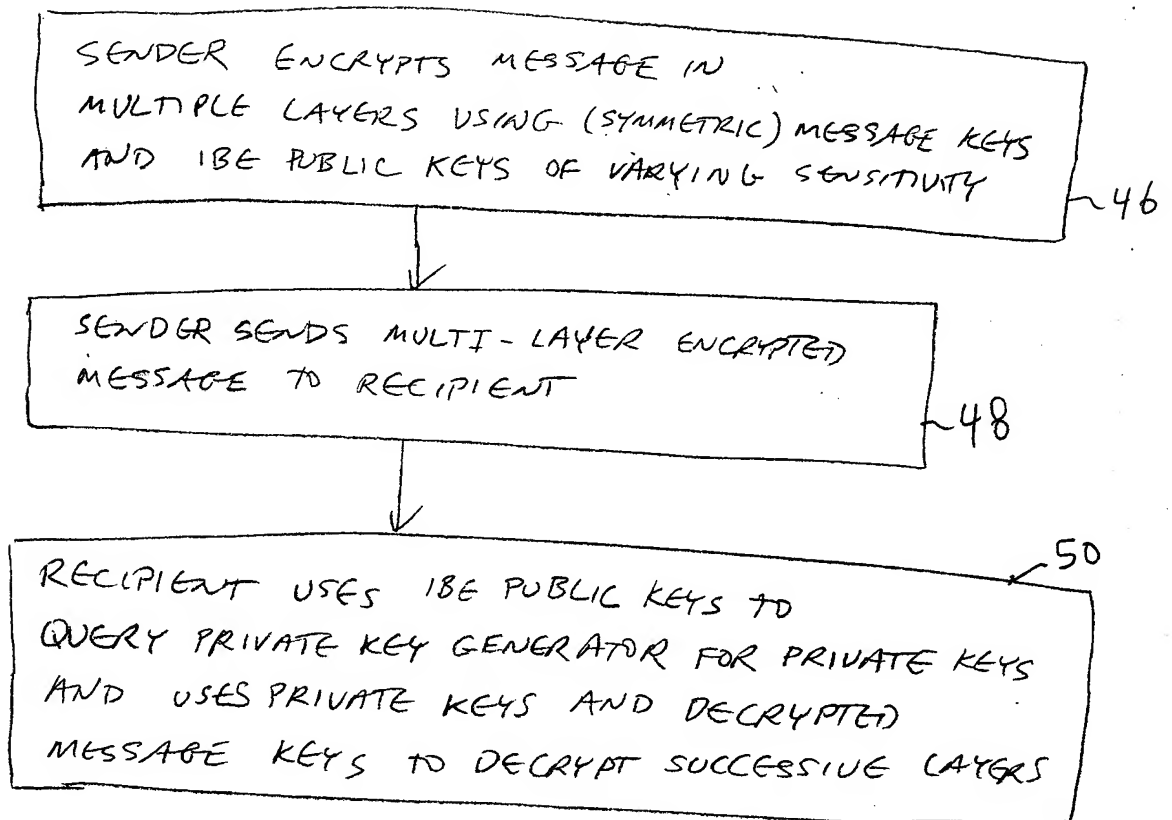 SENDER ENCRYPTS MESSAGE IN
MULTIPLE LAYERS USING (SYMMETRIC) MESSAGE KEYS
AND IBE PUBLIC KEYS OF VARYING SENSITIVITY
46
SENDER SENDS MULTI-LAYER ENCRYPTED
MESSAGE TO RECIPIENT
48
50
RECIPIENT USES IBE PUBLIC KEYS TO
QUERY PRIVATE KEY GENERATOR FOR PRIVATE KEYS
AND USES PRIVATE KEYS AND DECRYPTED
MESSAGE KEYS TO DECRYPT SUCCESSIVE LAYERS